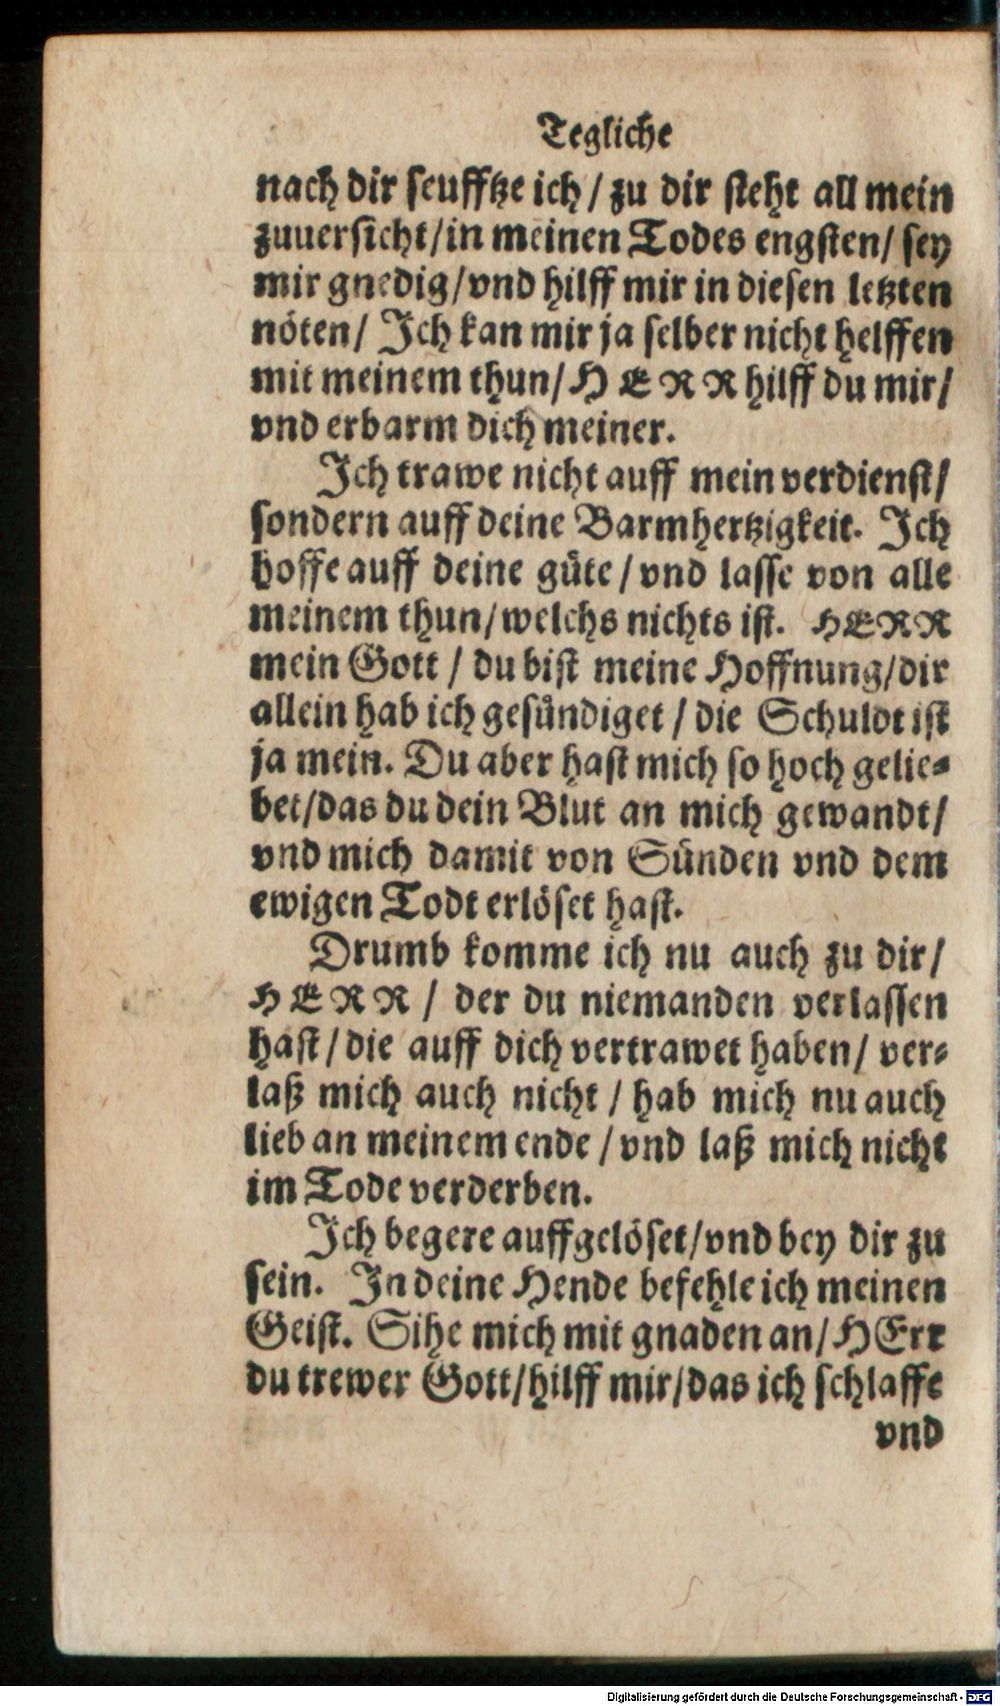 Tegliche
nach dir seufftze ich / zu dir steht all mein
zuuersicht/in meinen Todes engsten/ sey
mir gnedig/vnd hilff mir in diesen letzten
nöten/ Ich kan mir ja selber nicht helffen
mit meinem thun/HERR hilff du mir/
vnd erbarm dich meiner.
Ich trawe nicht auff mein verdienst/
sondern auff deine Barmhertzigkeit. Ich
hoffe auff deine güte / vnd lasse von alle
meinem thun/welchs nichts ist. HERR
mein Gott / du bist meine Hoffnung/dir
allein hab ich gesündiget / die Schuldt ist
ja mein. Du aber hast mich so hoch gelie-
bet/das du dein Blut an mich gewandt/
vnd mich damit von Sünden vnd dem
ewigen Todt erlöset hast.
Drumb komme ich nu auch zu dir/
HERR / der du niemanden verlassen
hast / die auff dich vertrawet haben/ ver-
laß mich auch nicht / hab mich nu auch
lieb an meinem ende / vnd laß mich nicht
im Tode verderben.
Ich begere auffgelöset/vnd bey dir zu
sein. In deine Hende befehle ich meinen
Geist. Sihe mich mit gnaden an/HErr
du trewer Gott/hilff mir/das ich schlaffe
vnd
Digitalisierung gefördert durch die Deutsche Forschungsgemeinschaft - DFG